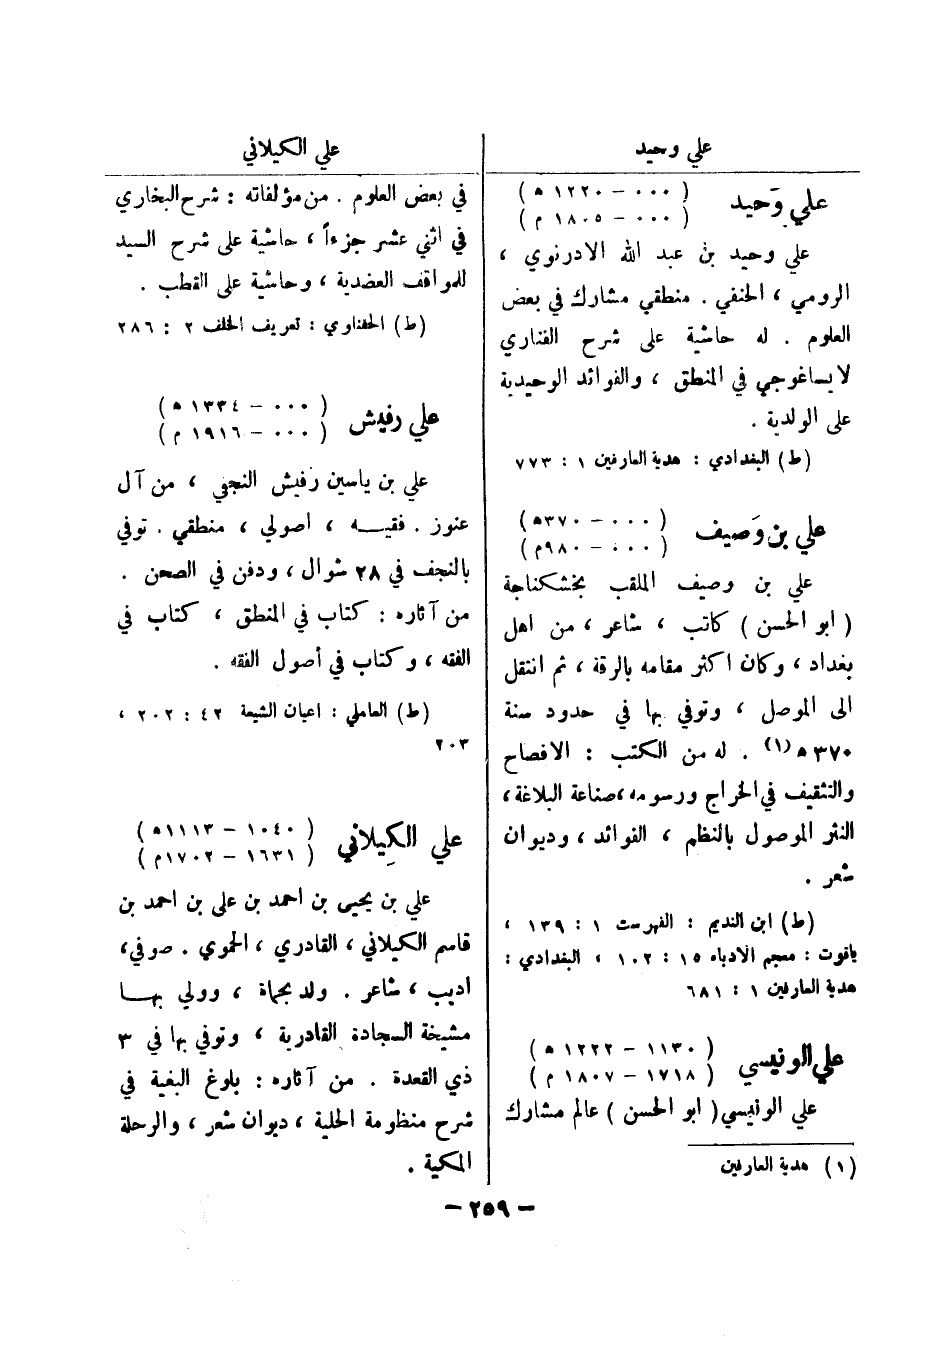 علي وحيد
علي وَحيد
( ٠٠٠ - ١٢٢٠ ه )
( ٠٠٠ - ١٨٠٥ م )
علي وحيد بن عبد الله الادرنوي ،
الرومي ، الحنفي . منطقي مشارك في بعض
العلوم . له حاشية على شرح الفناري
لايساغوجي في المنطق ، والفوائد الوحيدية
على الولدية .
(ط) البغدادي : هدية العارفين ١ : ٧٧٣
علي بن وَصيف
( ٠٠٠ - ٣٧٠ه )
( ٠٠٠ - ٩٨٠م )
علي بن وصيف الملقب بخشكناجة
( ابو الحسن ) كاتب ، شاعر ، من اهل
بغداد ، وكان اكثر مقامه بالرقة ، ثم انتقل
الى الموصل ، وتوفي بها في حدود سنة
٣٧٠ ه (١) . له من الكتب : الافصاح
والتثقيف في الخراج ورسومه ، صناعة البلاغة ،
النثر الموصول بالنظم ، الفوائد ، وديوان
شعر .
(ط) ابن النديم : الفهرست ١ : ١٣٩ ،
ياقوت : معجم الادباء ١٥ : ١٠٢ ، البغدادي :
هدية العارفين ١ : ٦٨١
علي الونيسي
( ١١٣٠ - ١٢٢٢ ه )
( ١٧١٨ - ١٨٠٧ م )
علي الونيسي ( ابو الحسن ) عالم مشارك
(١) هدية العارفين
علي الكيلاني
في بعض العلوم . من مؤلفاته : شرح البخاري
في اثني عشر جزءاً ، حاشية على شرح السيد
للمواقف العضدية ، وحاشية على القطب .
(ط) الحفناوي : تعريف الخلف ٢ : ٢٨٦
علي رفيش
( ٠٠٠ - ١٣٣٤ ه )
( ٠٠٠ - ١٩١٦ م )
علي بن ياسين رفيش النجفي ، من آل
عنوز . فقيه ، اصولي ، منطقي . توفي
بالنجف في ٢٨ شوال ، ودفن في الصحن .
من آثاره : كتاب في المنطق ، كتاب في
الفقه ، وكتاب في أصول الفقه .
(ط) العاملي : اعيان الشيعة ٤٢ : ٢٠٢ ،
٢٠٣
علي الكِيلاني
( ١٠٤٠ - ١١١٣ه )
( ١٦٣١ - ١٧٠٢م )
علي بن يحيى بن احمد بن علي بن احمد بن
قاسم الكيلاني ، القادري ، الحموي . صوفي ،
اديب ، شاعر . ولد بحماة ، وولي بها
مشيخة السجادة القادرية ، وتوفي بها في ٣
ذي القعدة . من آثاره : بلوغ البغية في
شرح منظومة الحلية ، ديوان شعر ، والرحلة
المكية .
- ٢٥٩ -